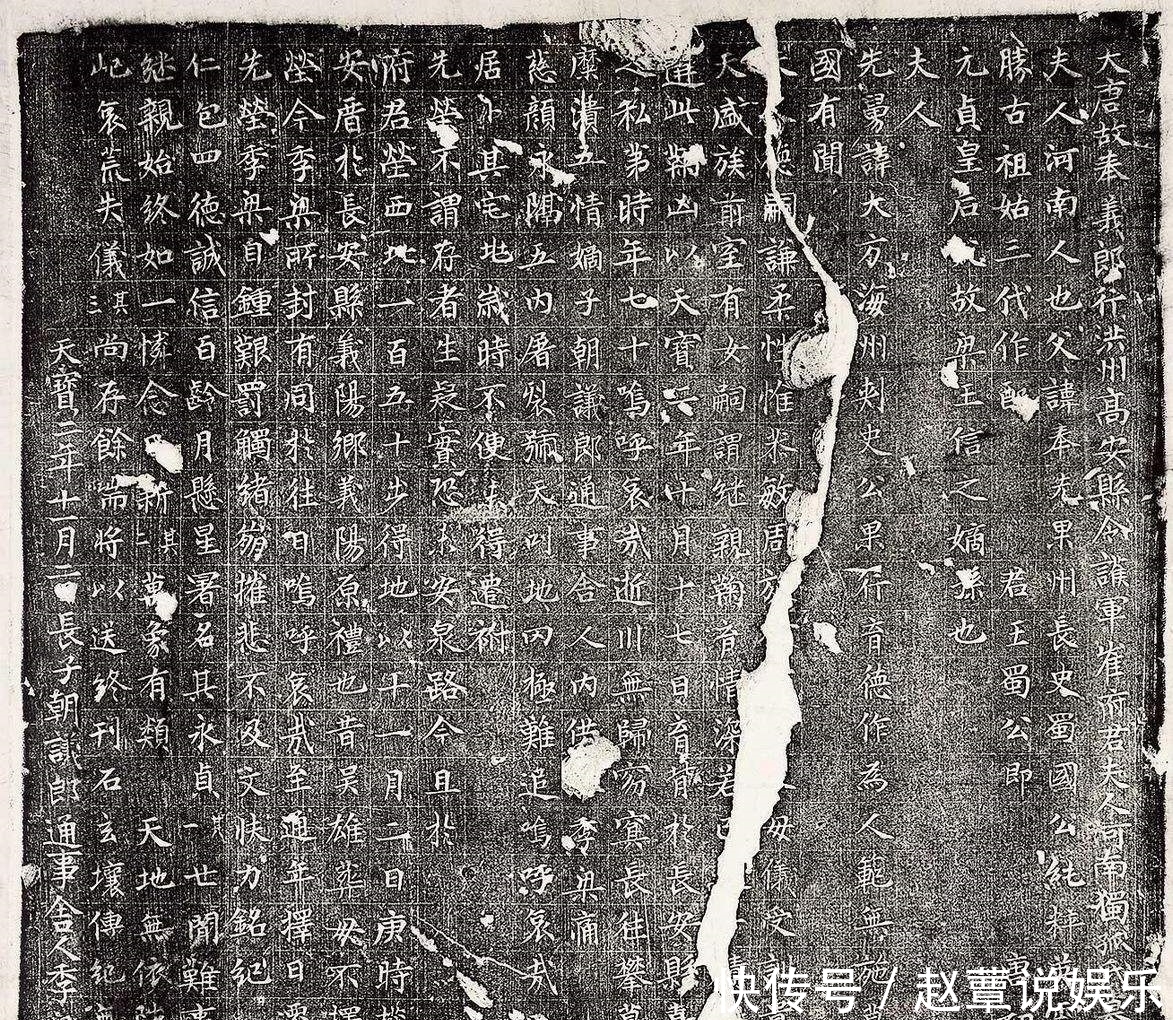 大唐故奉義郎行洪州高安縣令護軍崔府君夫人河南獨孤
夫人河南人也父諱奉先果州長史蜀國公純粹
勝古祖姑三代作配 君王蜀公即
元貞皇后 故梁王信之嫡孫也
夫人
先舅諱大方海州刾史公果行育德作為人範無施
國有聞
德嗣謙柔性惟米敏周 母儀受
天盛族前室有女嗣謂继親鞠育情深若已
遘此鞠凶以天寶 年 月十七日育背於長安縣
私第時年七十嗚呼哀哉逝川無歸穷冥長往攀
糜潰五情嫡子朝議郎通事舍人内供 季梁痛
慈顔永隔五内屠裂號天叩地罔極難追嗚呼哀哉
居卜其宅地嵗時不便未得遷祔
先塋不謂存者生疑實恐 安泉路今且於
府君塋西北一百五十步得地以十一月二日庚時
安厝於長安縣義陽鄉義陽原禮也昔吴雄葬母不擇
塋今季梁所封有同於往日嗚呼哀哉至通年擇日
先塋季梁自鍾艱罰觸緒崩摧悲不及文抆力銘紀
仁包四德誠信百齡月懸星署名其永貞其一世聞難
继親始終如一憐念 新其二萬象有類 天地無依
屺哀荒失儀其三尚存餘喘將以送終刊石玄壤傳紀
天寶二年十一月二 長子朝議郎通事舍人季
快传号 / 赵蕈说娱乐